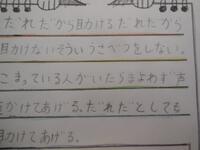 だれだから助けるだれだから
助けないそういうさべつをしない。
こまっている人がいたらまよわず声
をかけてあげる。だれだとしても
助けてあげる。